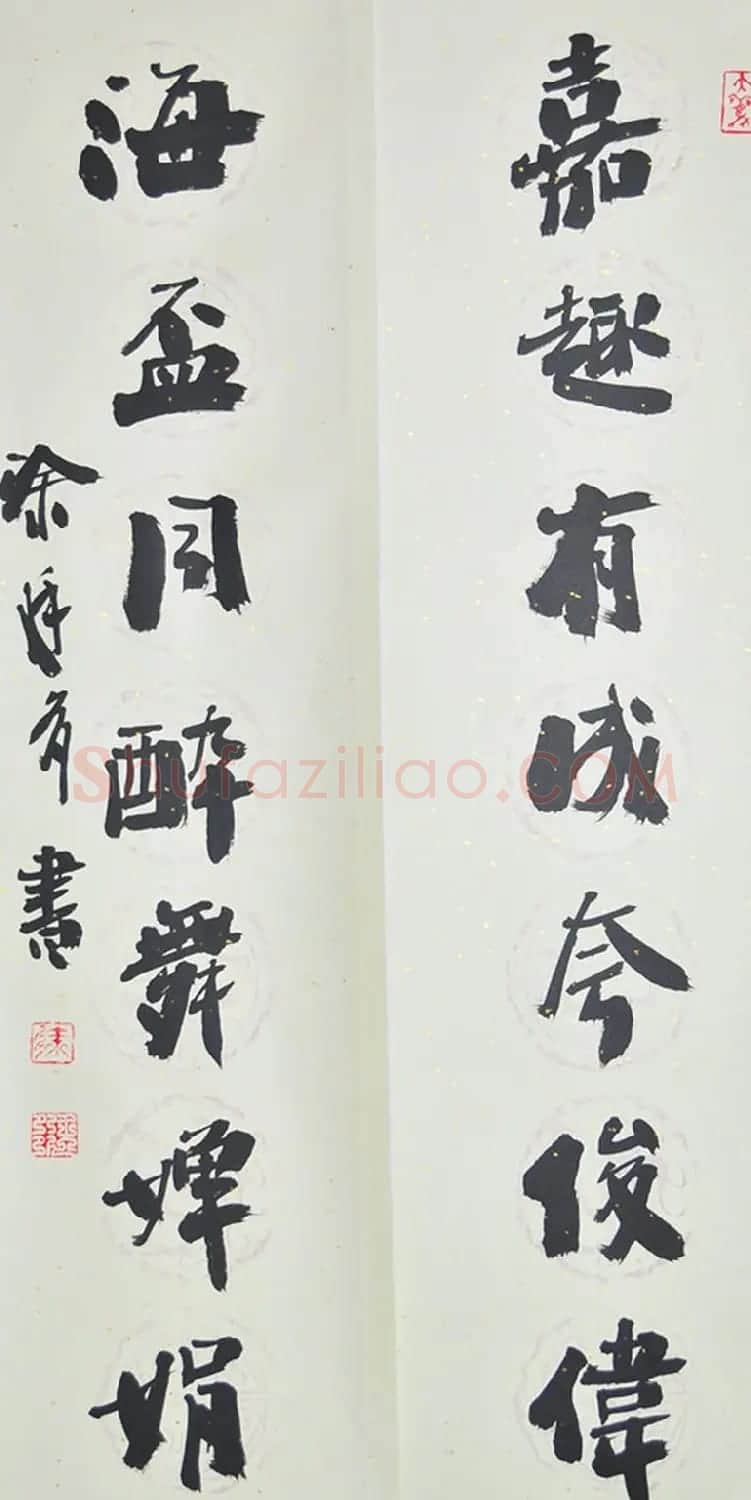 嘉趣有成今俊偉
海盃同醉舞嬋娟
書
Shufaziliao.COM